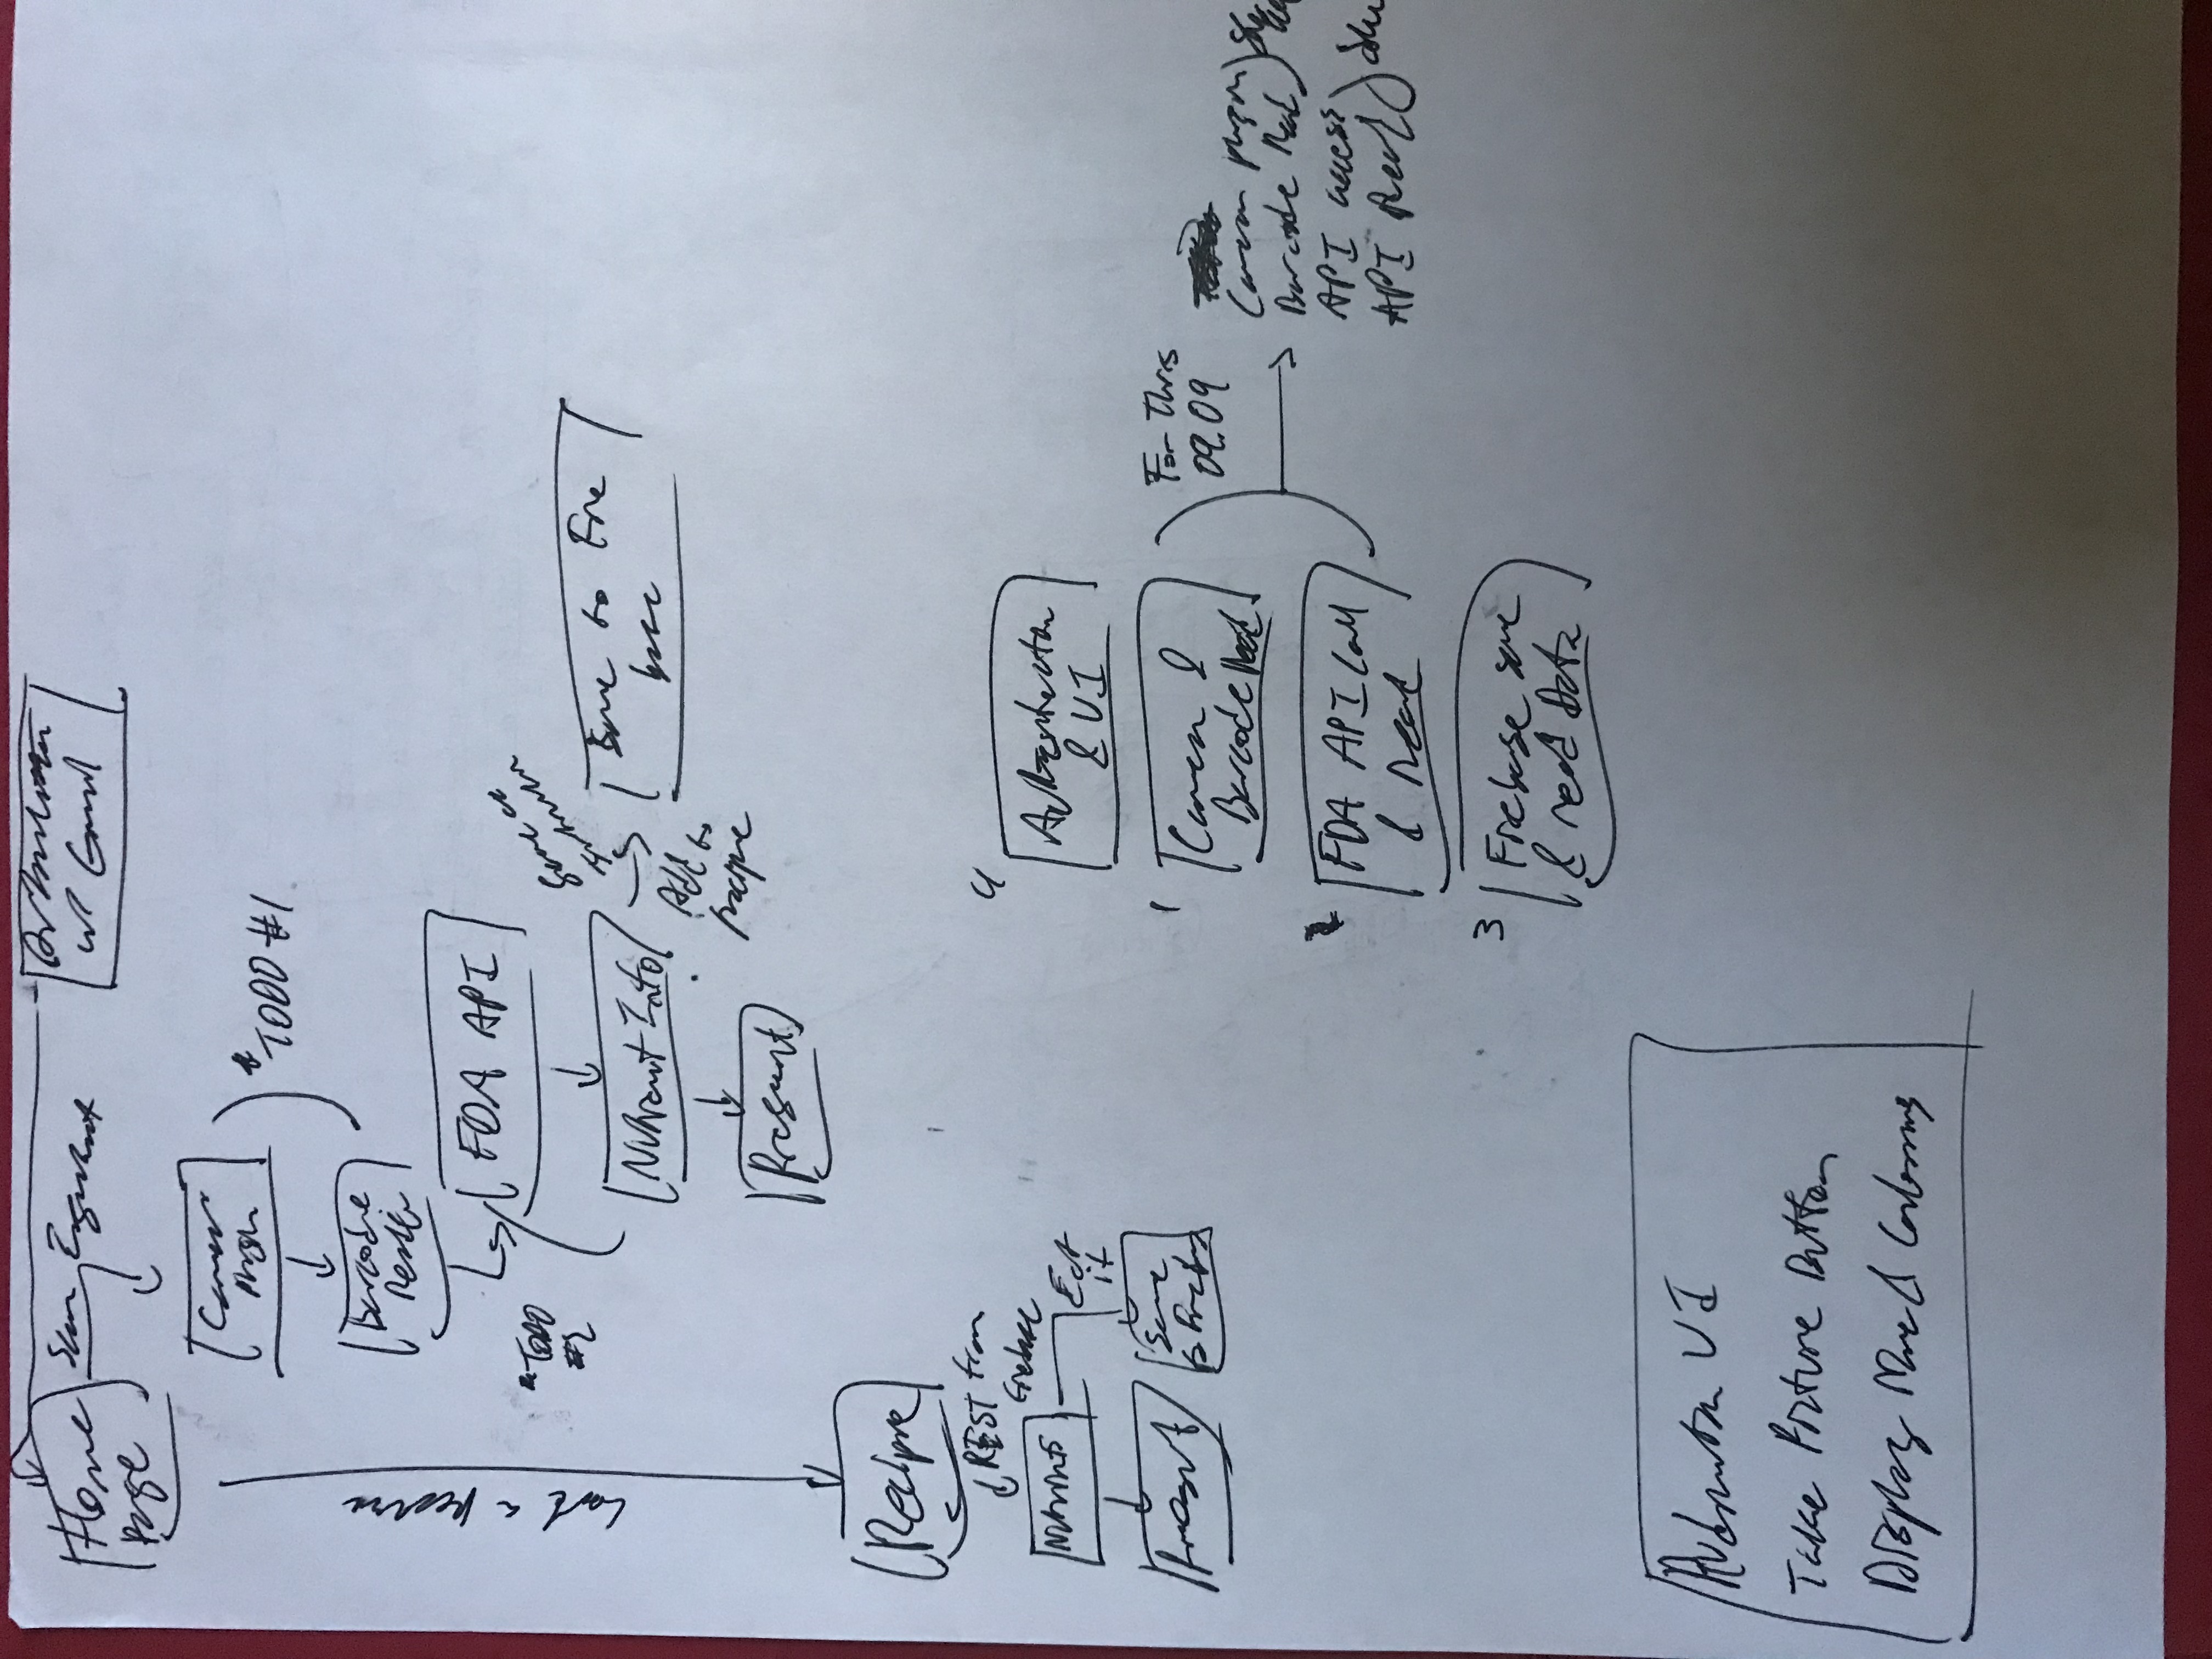 Home
Page
Scan Ingredient
w/ Gmail
Camera
Plugin
* TODO #1
Barcode
Reader
FDA API
* TODO
#2
Nutrient Info
Save as
Add to
Recipe
Save to Fire
base
Present
a recipe
Recipe
REST from
Firebase
Nutrients
Edit
it
Present
Save
to Firebase
4
Authentication
& UI
1
Camera &
Barcode Read
2
FDA API Call
& Read
3
Firebase save
& read Data
For This
09.09
Camera plugin
Barcode Read
API access
API Read
UI
Take Picture Button
Display